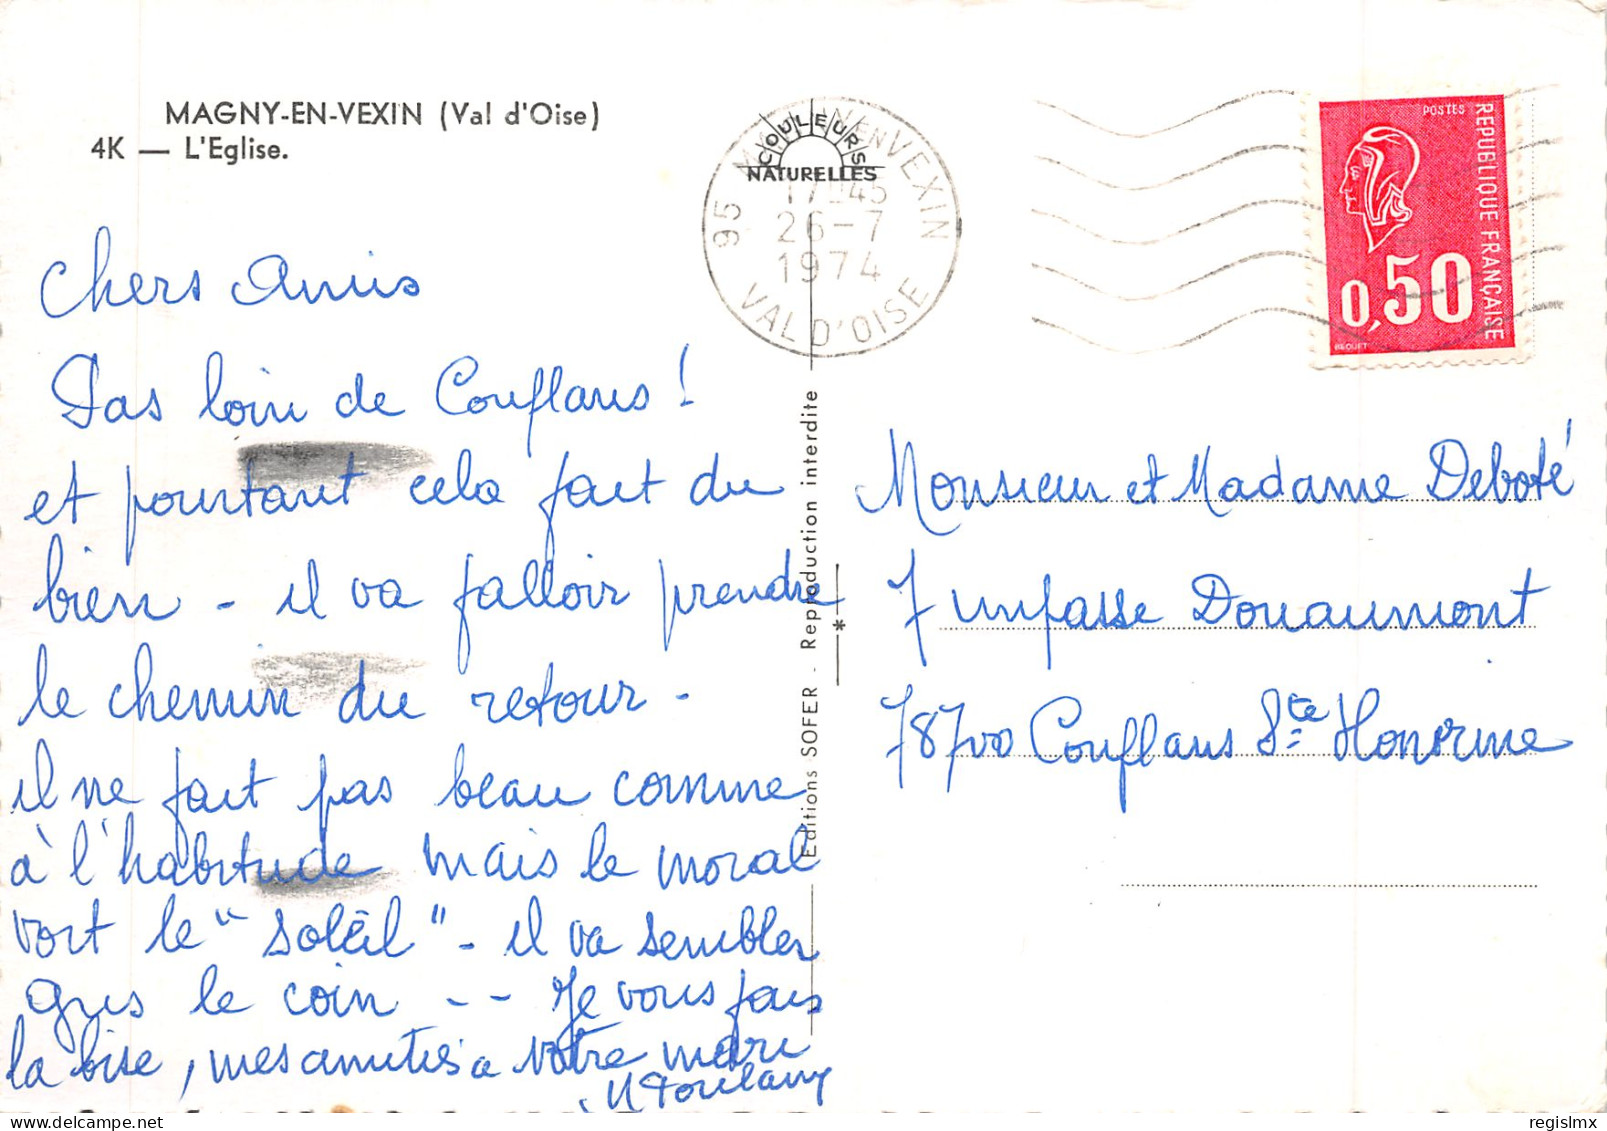 MAGNY-EN-VEXIN (Val d'Oise)
4K — L'Eglise.
COULEURS
NATURELLES
95 MAGNY EN VEXIN
17-45
26-7
1974
VAL D'OISE
POSTES
REPUBLIQUE FRANÇAISE
0,50
BEQUET
Chers Amis
Pas loin de Conflans !
et pourtant cela fait du
bien - il va falloir prendre
le chemin du retour -
il ne fait pas beau comme
à l'habitude mais le moral
voit le "soleil" - il va sembler
gris le coin - - Je vous fais
la bise, mes amitiés à votre mari
Editions SOFER - Reproduction interdite
*
Monsieur et Madame Deboté
7 impasse Douaumont
78700 Conflans Ste Honorine
regislmx